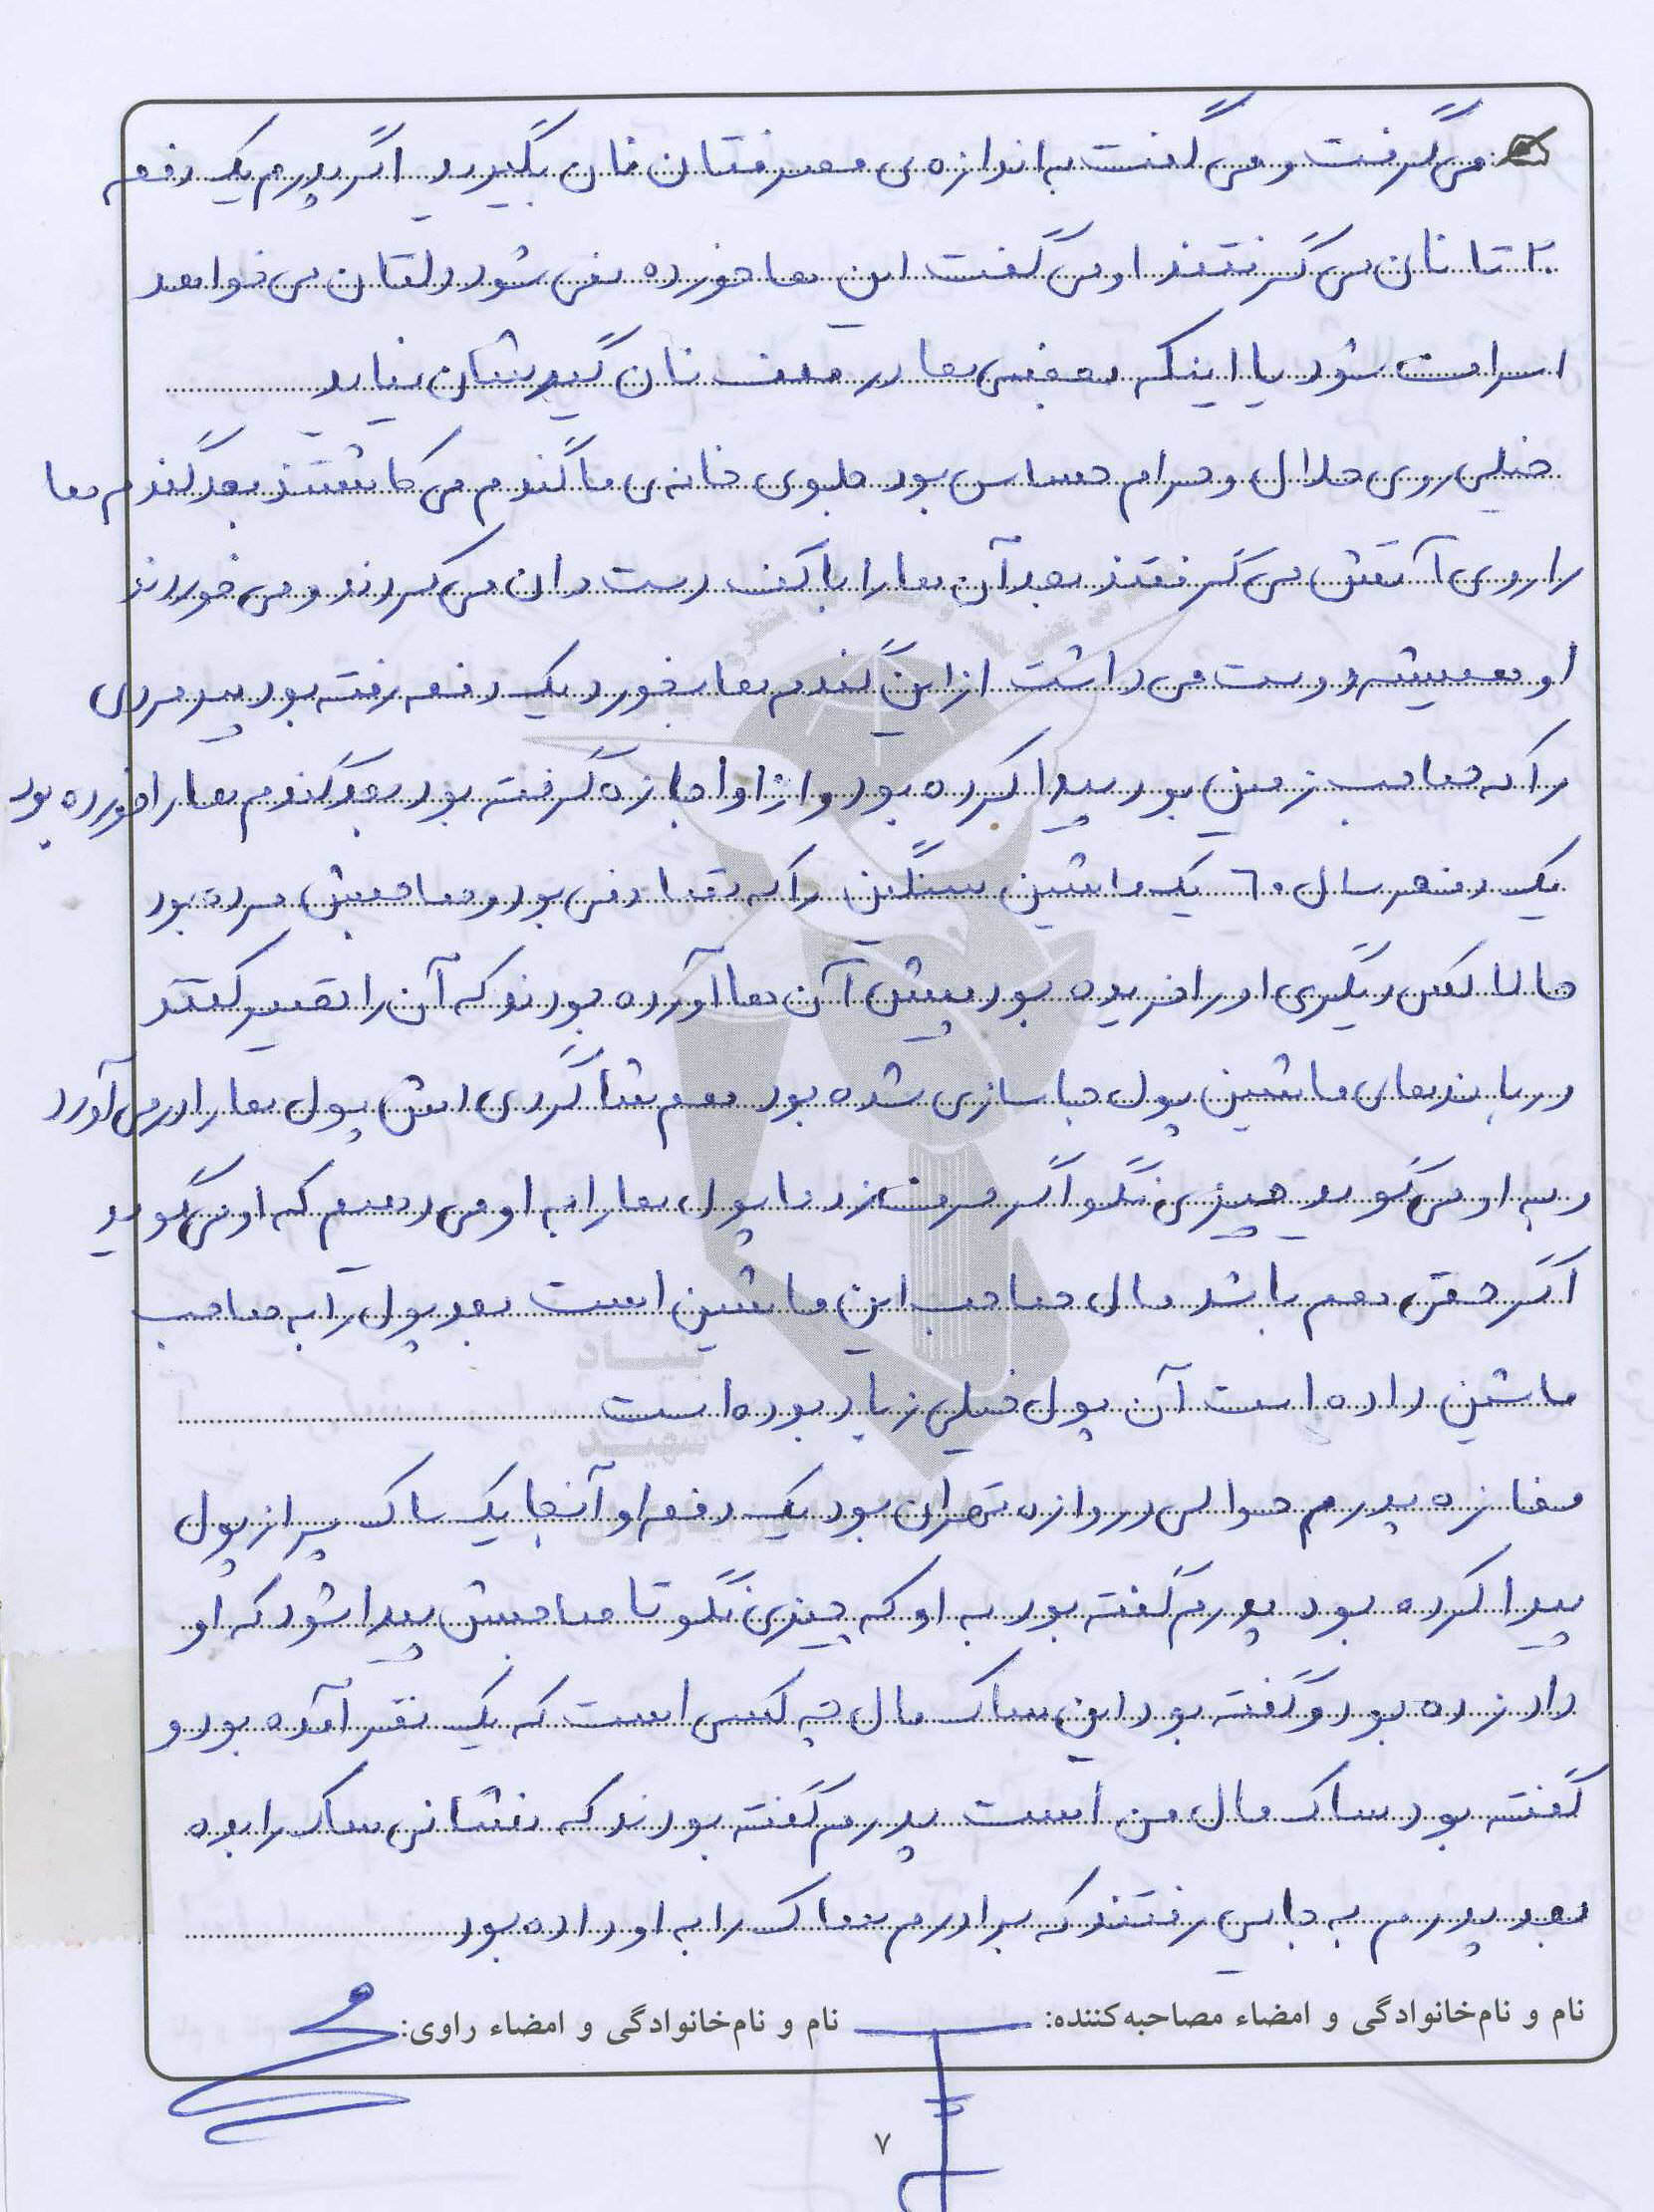 می گرفت و می گفت به اندازه ی مصرفتان نان بگیرید اگر پدرم یک دفعه
۲۰ تا نان می گرفتند او می گفت این ها خورده نمی شود دلتان می خواهد
اسراف شود یا اینکه بعضی ها در صف نان گیرشان نیاید
خیلی روی حلال و حرام حساس بود جلوی خانه ی ما گندم می کاشتند بعد گندم ها
را روی آتش می گرفتند بعد آن ها را با کف دست دان می کردند و می خوردند
او همیشه دوست می داشت از این گندم ها بخورد یک دفعه رفته بود پیرمردی
را که صاحب زمین بود پیدا کرده بود و از او اجازه گرفته بود بعد گندم ها را خورده بود
یک دفعه سال ۶۰ یک ماشین سنگین را که تصادفی بود و صاحبش مرده بود
حالا کس دیگری او را خریده بود پیش آن ها آورده بودند که آن را تعمیر کنند
در باندهای ماشین پول جاسازی شده بود هم شاگردی اش پول ها را در می آورد
و به او می گوید چیزی نگو اگر حرف زد ما پول ها را به او می دهیم که او می گوید
اگر حقی هم باشد مال صاحب این ماشین است بعد پول را به صاحب
ماشین داده است آن پول خیلی زیاد بوده است
مغازه پدرم حوالی دروازه تهران بود یک دفعه او آنجا یک ساک پر از پول
پیدا کرده بود پدرم گفته بود به او که چیزی نگو تا صاحبش پیدا شود که او
داد زده بود و گفته بود این ساک مال چه کسی است که یک نفر آمده بود و
گفته بود ساک مال من است پدرم گفته بودند که نشانی ساک را بده
بعد پدرم به جایی رفتند که برادرم ساک را به او داده بود
نام و نام‌خانوادگی و امضاء مصاحبه‌کننده: نام و نام‌خانوادگی و امضاء راوی:
۷